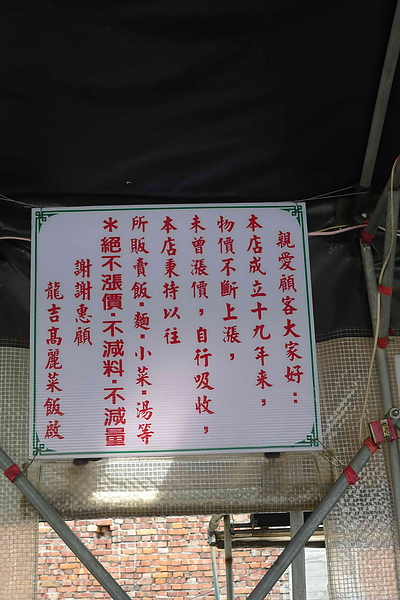 親愛顧客大家好：
本店成立十九年來，
物價不斷上漲，
未曾漲價，自行吸收，
本店秉持以往
所販賣飯．麵．小菜．湯等
＊絕不漲價．不減料．不減量
謝謝惠顧
龍吉高麗菜飯啟